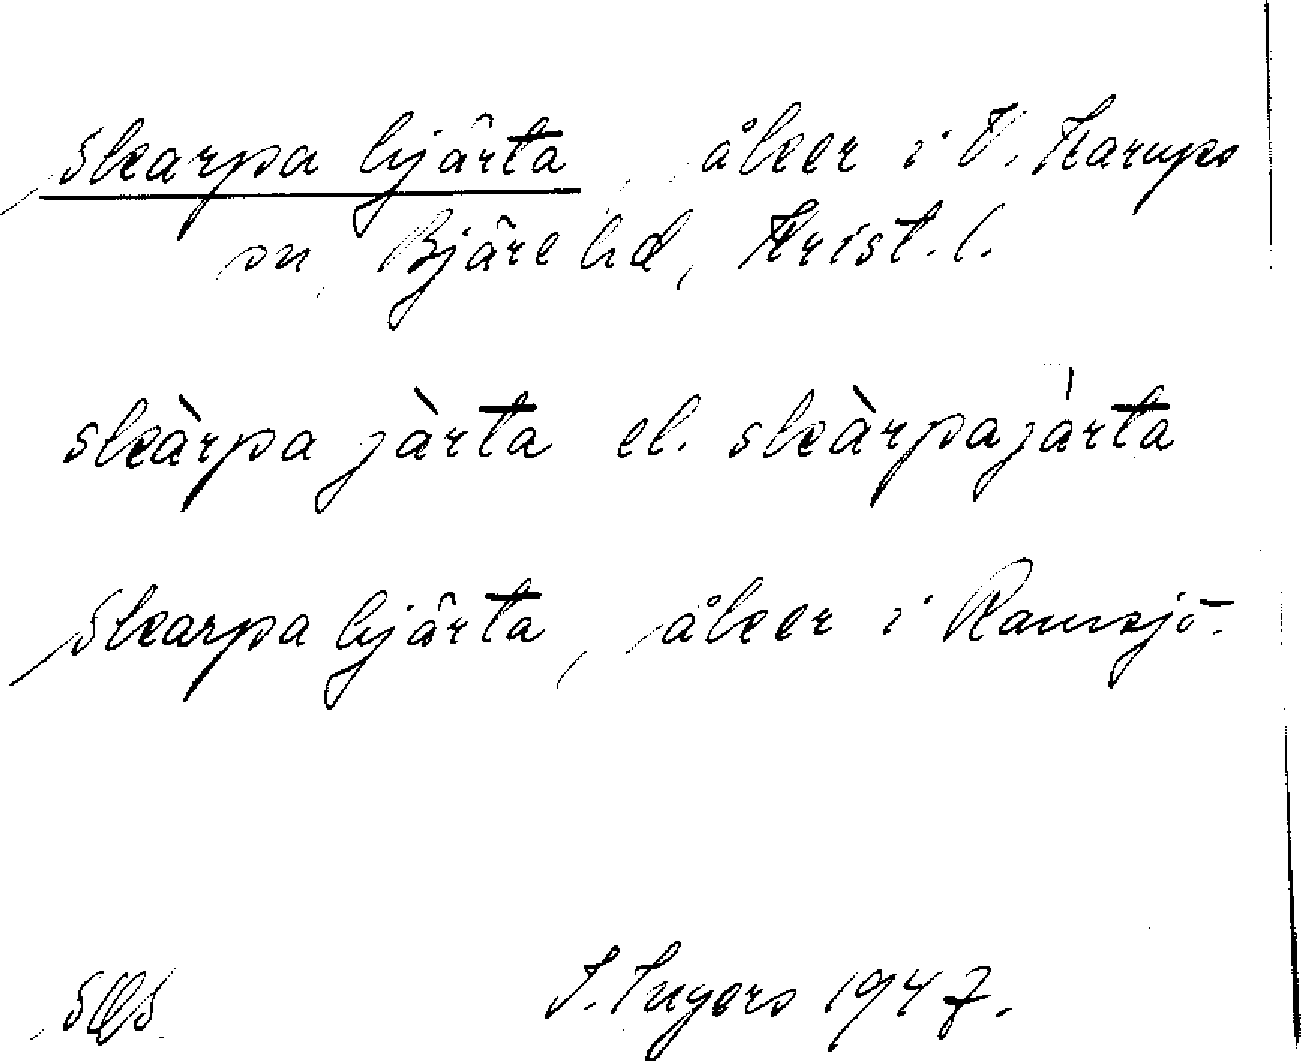 Skarpa hjärta, åker i V. Karups
sn, Bjäre hd, Krist. l.
skàrpa jàrta el. skàrpajárta
Skarpa hjärta, åker i Ramsjö.
I. Ingers 1947.